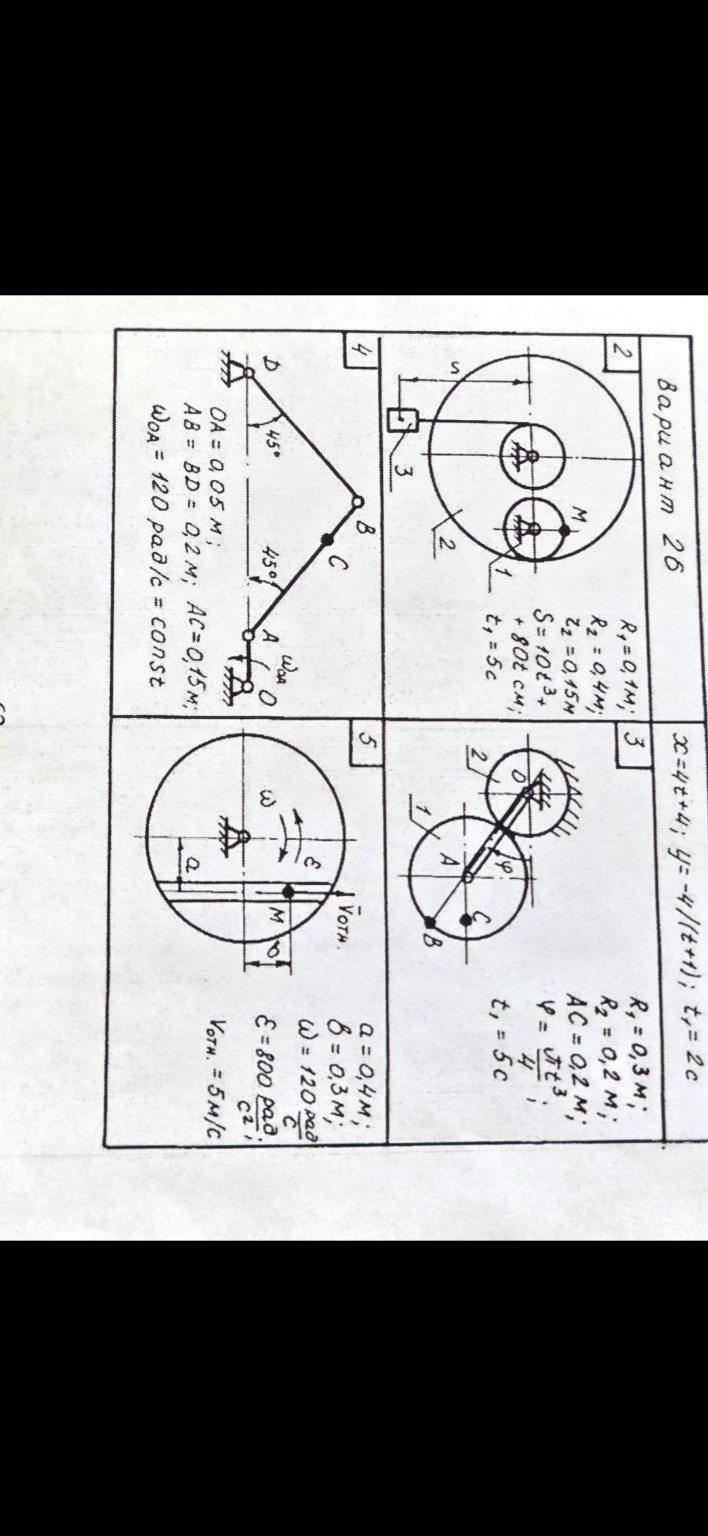 Вариант 26
x=4t+4; y=-4/(t+1); t₁=2c
2
R₁=0,1м;
R₂=0,4м;
r₂=0,15м
S=10t³+
+80t см;
t₁=5c
M
1
2
3
S
3
R₁=0,3м;
R₂=0,2м;
AC=0,2м;
φ=πt³/4;
t₁=5c
O
2
1
φ
A
C
B
4
D
45°
B
C
45°
A
ω_OA
O
OA=0,05м;
AB=BD=0,2м; AC=0,15м;
ω_OA=120 рад/с=const
5
ω
ε
a
M
V̄отн.
b
a=0,4м;
b=0,3м;
ω=120 рад/с
ε=800 рад/с²;
Vотн.=5м/с